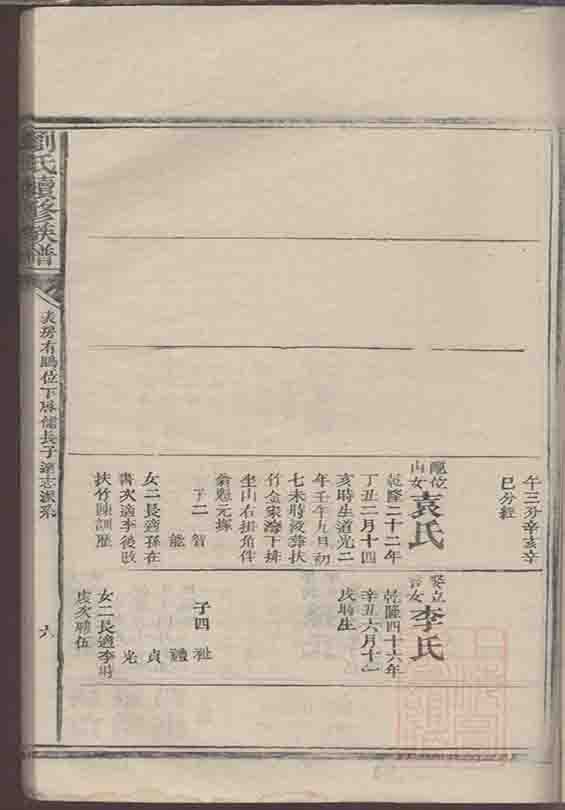 午三分辛亥辛
巳分經
配位
山女
袁氏
乾隆二十二年
丁丑二月十四
亥時生道光二
年壬午九月初
七未時歿葬扶
竹金宋海下排
坐山右掛角伴
翁懋元塚
子二 智
能
女二長適孫在
書次適李後
扶竹陳訓歷
李氏
乾隆四十六年
辛丑六月十一
戌時生
子四 祉
禮
貞
光
女二長適李時
次聘伍
劉氏續修族譜
房有鵬位下 儒長子 志派系
六